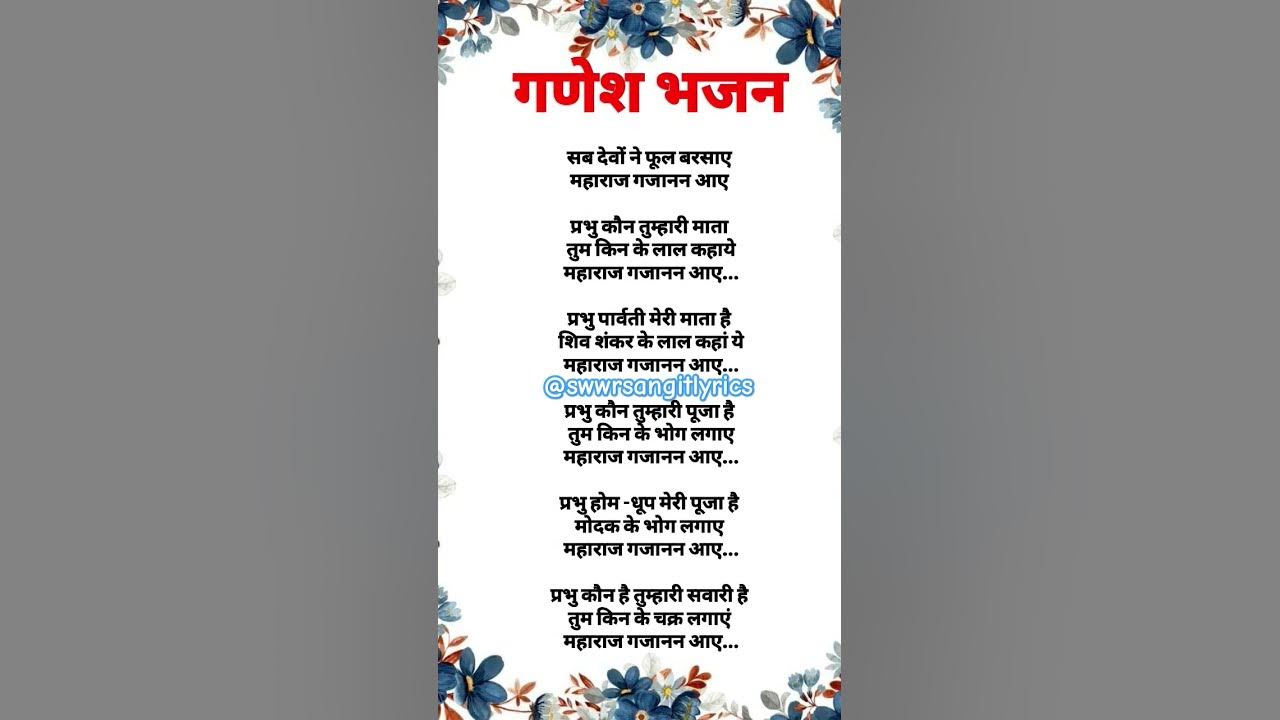 गणेश भजन
सब देवों ने फूल बरसाए
महाराज गजानन आए
प्रभु कौन तुम्हारी माता
तुम किन के लाल कहाये
महाराज गजानन आए...
प्रभु पार्वती मेरी माता है
शिव शंकर के लाल कहां ये
महाराज गजानन आए...
@swwrsangitlyrics
प्रभु कौन तुम्हारी पूजा है
तुम किन के भोग लगाए
महाराज गजानन आए...
प्रभु होम -धूप मेरी पूजा है
मोदक के भोग लगाए
महाराज गजानन आए...
प्रभु कौन है तुम्हारी सवारी है
तुम किन के चक्र लगाएं
महाराज गजानन आए...